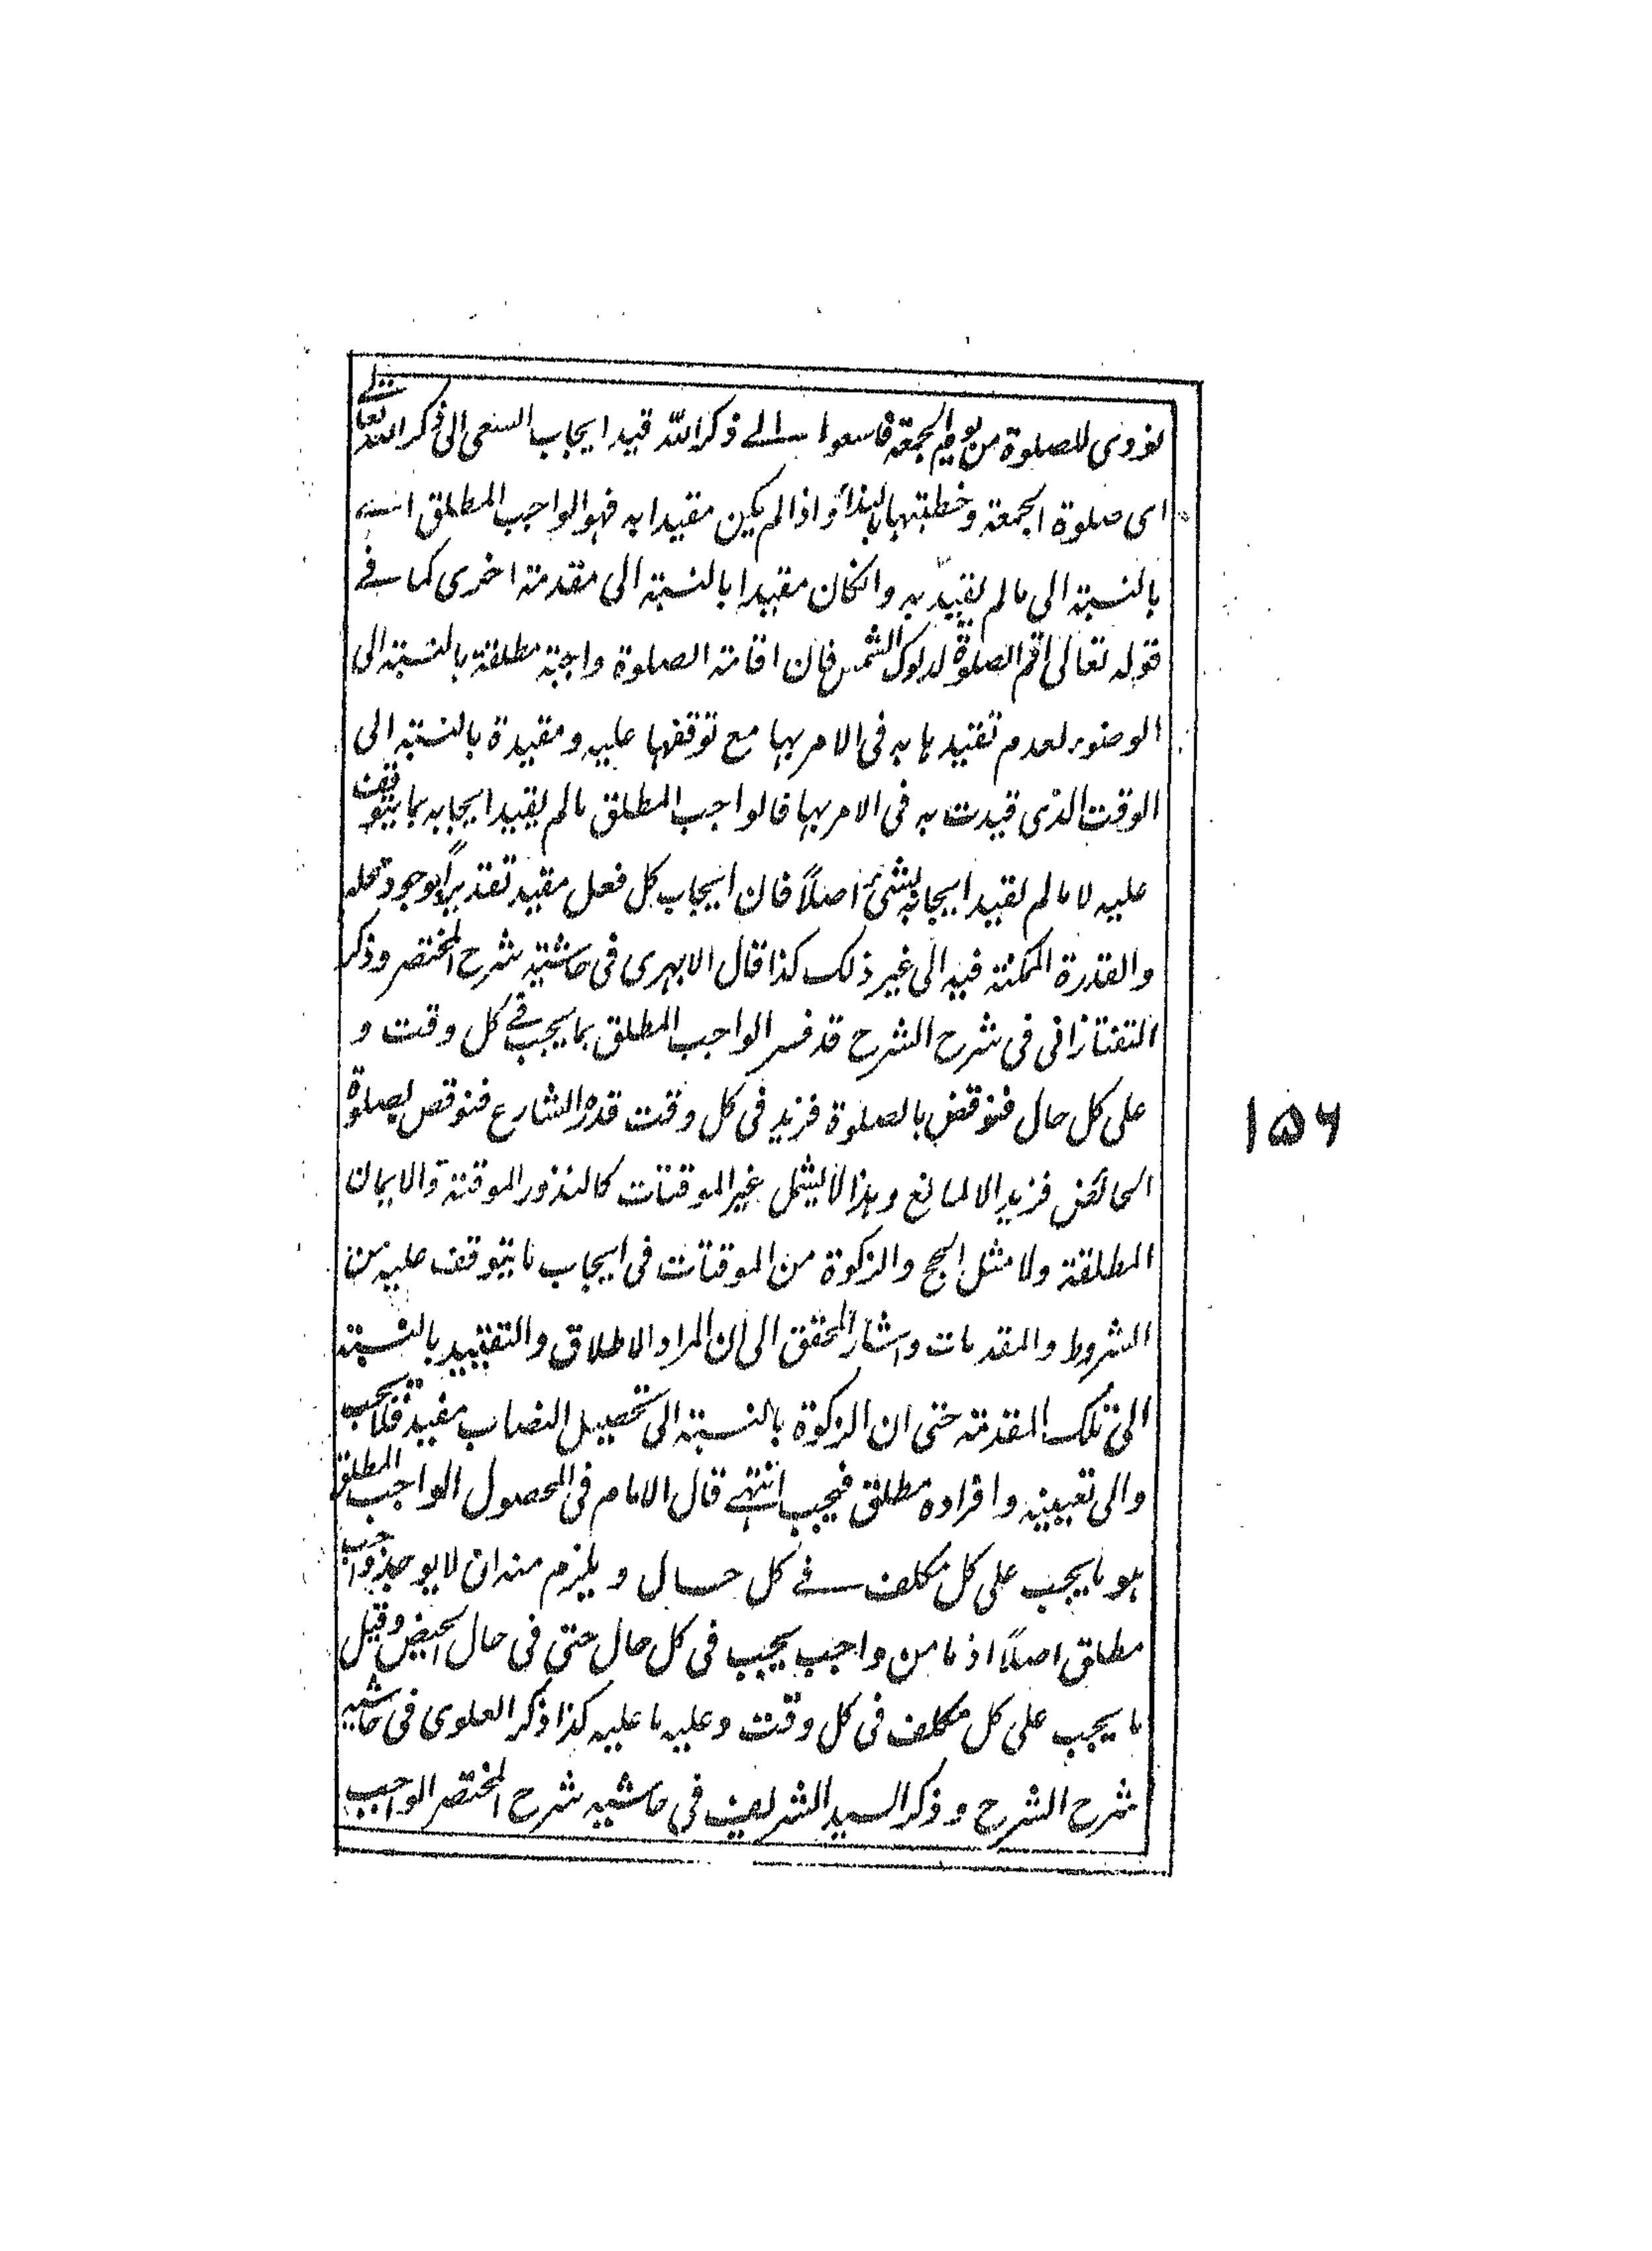 نودى للصلوة من يوم الجمعة فاسعوا الے ذكر الله قيد ايجاب السعى الى ذكر الله تعالے
اى صلوة الجمعة وخطبتها بالنداء واذا لم يكن مقيدا به فهو الواجب المطلق اے
بالنسبة الى ما لم يقيد به وانكان مقيدا بالنسبة الى مقدمة اخرى كما فے
قوله تعالى اقم الصلوة لدلوك الشمس فان اقامة الصلوة واجبة مطلقة بالنسبة الى
الوضوء لعدم تقييدها به فى الامر بها مع توقفها عليه ومقيدة بالنسبة الى
الوقت الذى قيدت به فى الامر بها فالواجب المطلق ما لم يقيد ايجابه بما يتوقف
عليه لا ما لم يقيد ايجابه بشئ اصلاً فان ايجاب كل فعل مقيد تقديراً بوجود محله
والقدرة الممكنة فيه الى غير ذلك كذا قال الابهرى فى حاشية شرح المختصر وذكر
التفتازانى فى شرح الشرح قد فسر الواجب المطلق بما يجب فے كل وقت و
على كل حال فنوقض بالصلوة فزيد فى كل وقت قدره الشارع فنوقض بصلوة
الحائض فزيد الا لمانع وهذا لا يشمل غير الموقتات كالنذور الموقتة والايمان
المطلقة ولا مثل الحج والزكوة من الموقتات فى ايجاب ما يتوقف عليه من
الشروط والمقدمات واشار المحقق الى ان المراد الاطلاق والتقييد بالنسبة
الى تلك المقدمة حتى ان الزكوة بالنسبة الى تحصيل النصاب مقيد فلا يجب
والى تعيينه وافراده مطلق فيجب انتهے قال الامام فى المحصول الواجب المطلق
هو ما يجب على كل مكلف فے كل حال ويلزم منه ان لا يوجد واجب
مطلق اصلاً اذ ما من واجب يجب فى كل حال حتى فى حال الحيض وقيل
ما يجب على كل مكلف فى كل وقت وعليه ما عليه كذا ذكر العلوى فى حاشية
شرح الشرح وذكر السيد الشريف فى حاشية شرح المختصر الواجب
۱۵۶